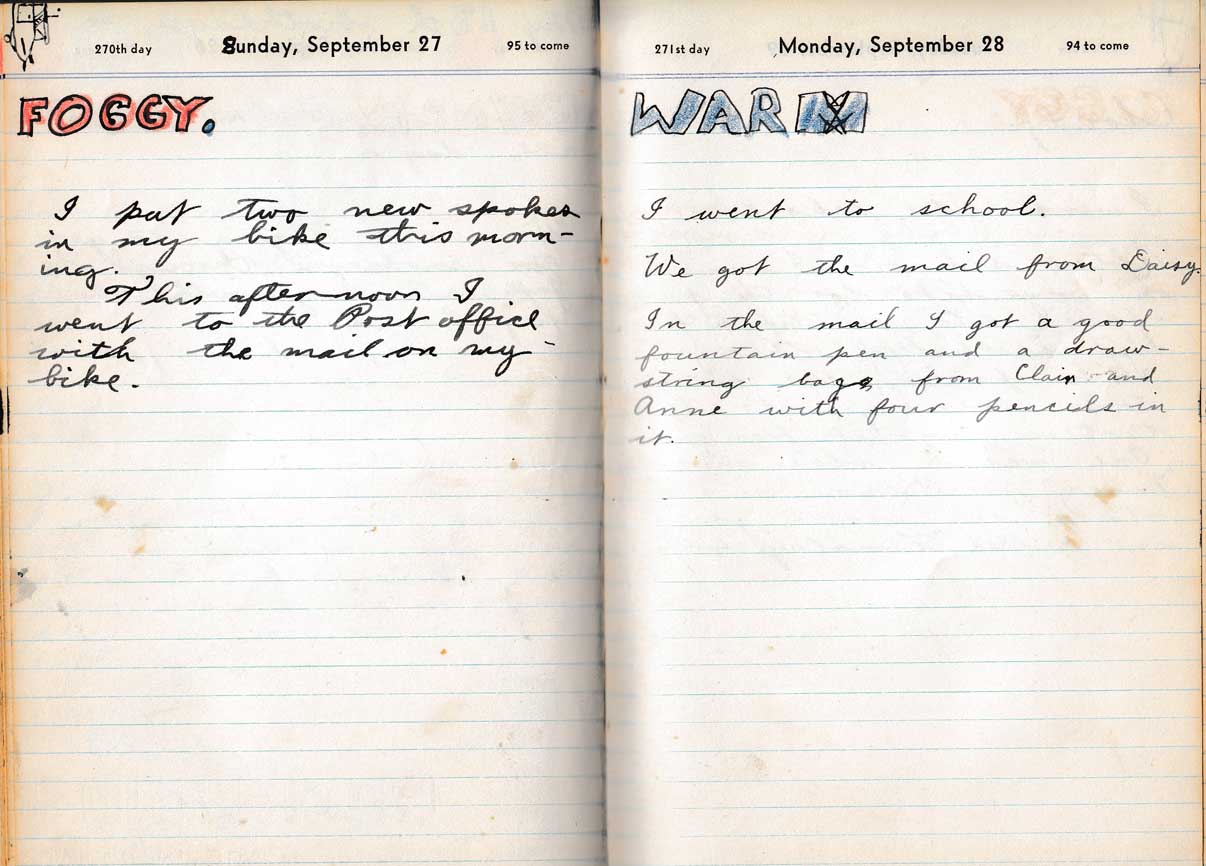 270th day Sunday, September 27 95 to come
FOGGY.
I put two new spokes
in my bike this morn-
ing.
This afternoon I
went to the Post office
with the mail on my
bike.
271st day Monday, September 28 94 to come
WARM
I went to school.
We got the mail from Daisy.
In the mail I got a good
fountain pen and a draw-
string bag from Clair and
Anne with four pencils in
it.